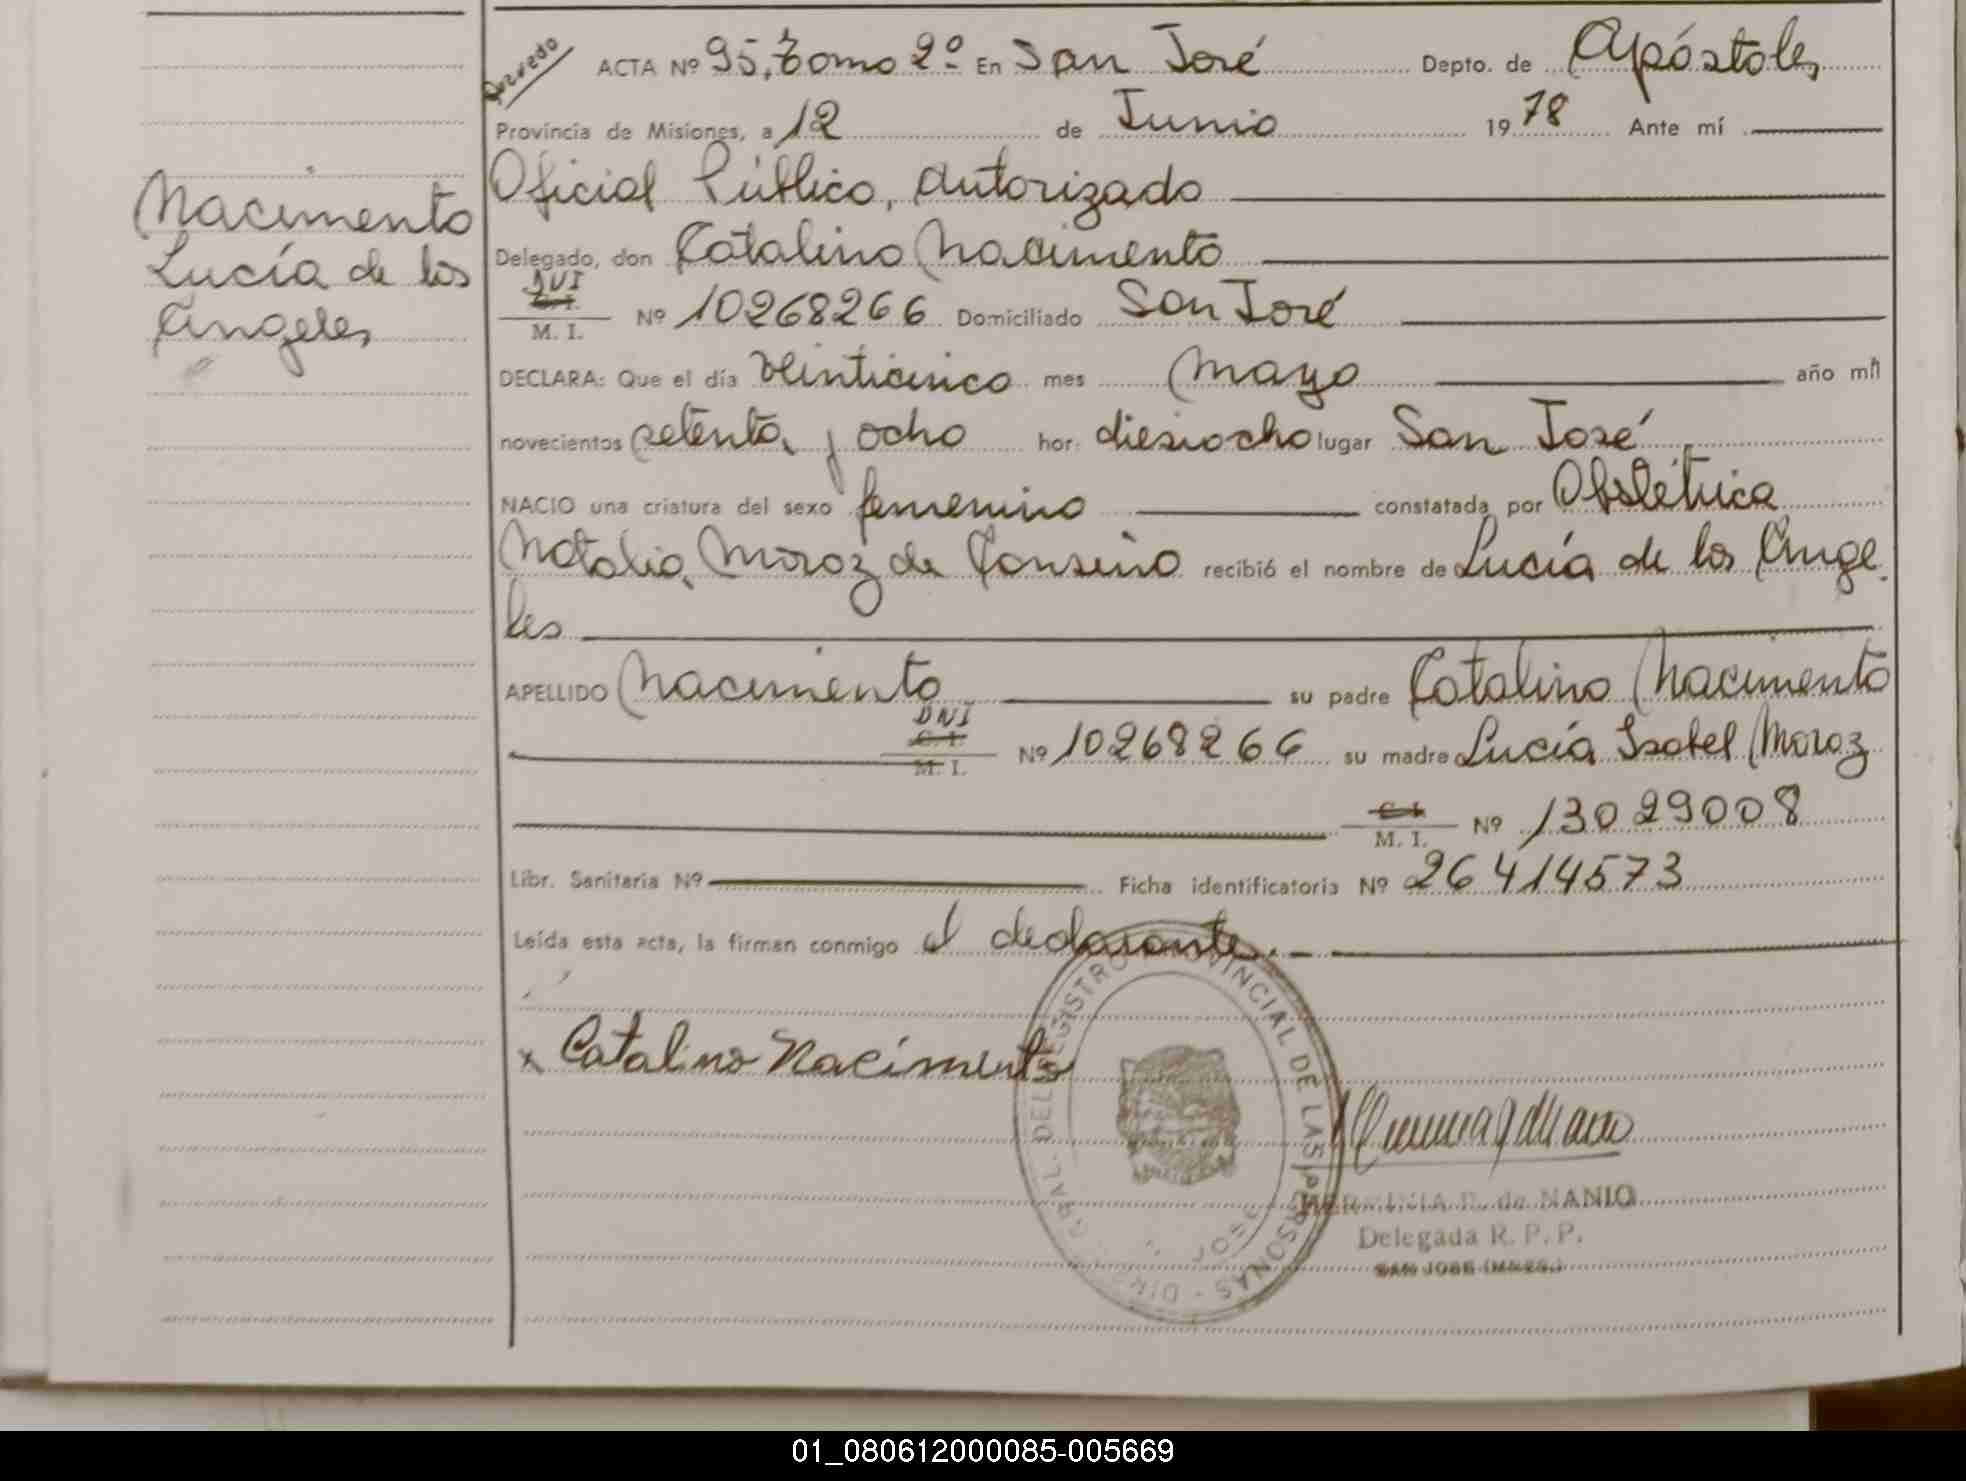 ACTA Nº 95, Tomo 2º En San José Depto. de Apóstoles
Provincia de Misiones, a 12 de Junio 1978 Ante mí
Oficial Público, autorizado
Nacimento
Lucía de los
Angeles
Delegado, don Catalino Nacimento
DNI
C. I.
M. I. Nº 10268266 Domiciliado San José
DECLARA: Que el día Veinticinco mes Mayo año mil
novecientos setenta y ocho hor. diesiocho lugar San José
NACIO una criatura del sexo femenino constatada por Obstétrica
Natalia Moroz de recibió el nombre de Lucía de los Ange
les
APELLIDO Nacimento su padre Catalino Nacimento
DNI
C. I.
M. I. Nº 10268266 su madre Lucía Isabel Moroz
C. I.
M. I. Nº 13029008
Libr. Sanitaria Nº Ficha identificatoria Nº 26414573
Leída esta acta, la firman conmigo el declarante.
x Catalino Nacimento
REGISTRO PROVINCIAL DE LAS PERSONAS
de NANIO
Delegada R. P. P.
SAN JOSE (MNES.)
01_080612000085-005669